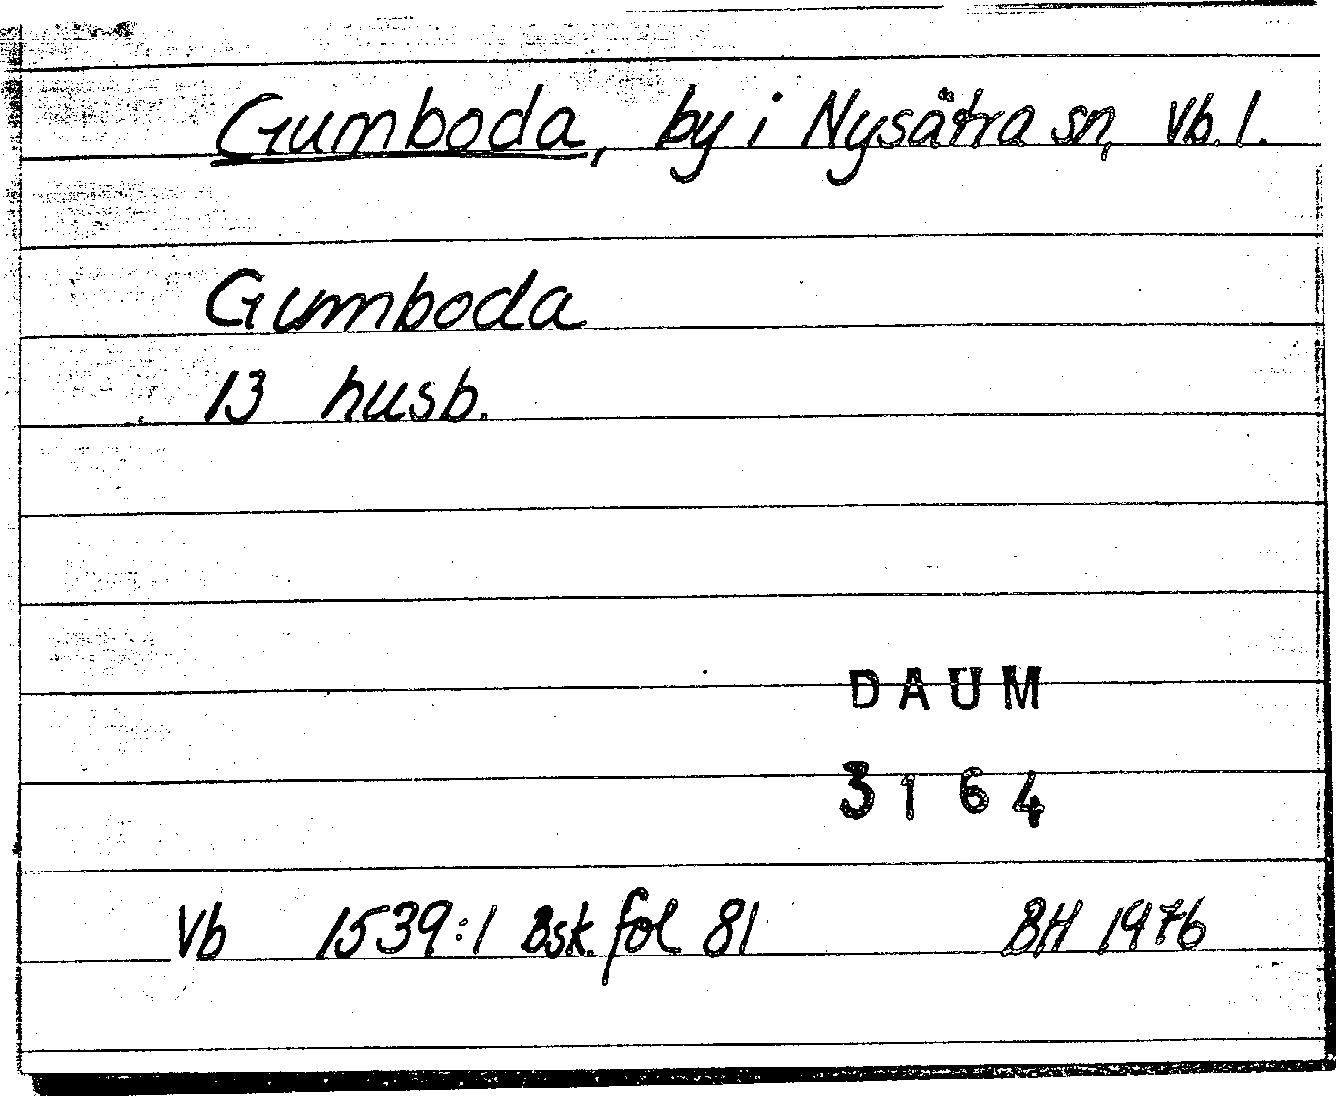 Gumboda, by i Nysätra sn, Vb. l.
Gumboda
13 husb.
DAUM
3164
Vb 1539:1 Bsk. fol 81 BH 1976